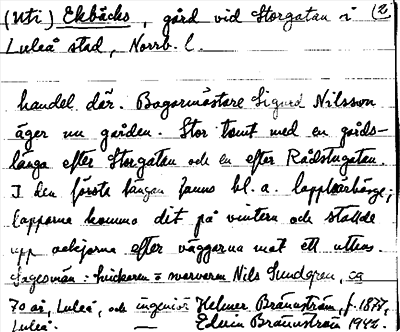 (Uti) Ekbäcks, gård vid Storgatan i (2
Luleå stad, Norrb. l.
handel där. Bagarmästare Sigurd Nilsson
äger nu gården. Stor tomt med en gårds-
länga efter Storgatan och en efter Rådstugatan.
I den förste längan fanns bl. a. lappkvarhänge;
lapparna kommo dit på vintern och ställde
upp ackjorna efter väggarna mot ett uthus.
Sagesmän: snickaren o svarvaren Nils Lundgren, ca
70 år, Luleå, och ingeniör Helmer Brännström, f. 1877,
Luleå. — Edvin Brännström 1942.